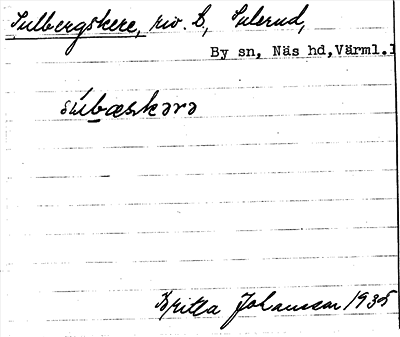 Sulbergskere, riv. b, Sulerud,
By sn, Näs hd, Värml.l
súbæskərə
Britta Johansson 1935